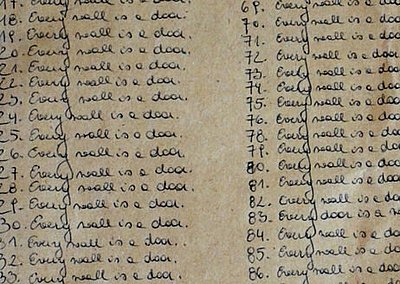 17. Every wall is a door.
18. Every wall is a door.
19. Every wall is a door.
20. Every wall is a door.
21. Every wall is a door.
22. Every wall is a door.
23. Every wall is a door.
24. Every wall is a door.
25. Every wall is a door.
26. Every wall is a door.
27. Every wall is a door.
28. Every wall is a door.
29. Every wall is a door.
30. Every wall is a door.
31. Every wall is a door.
32. Every wall is a door.
33. Every wall is a door.
69. Every wall is a
70. Every wall is a
71. Every wall is a
72. Every wall is a
73. Every wall is a
74. Every wall is a
75. Every wall is a
76. Every wall is a
78. Every wall is a
79. Every wall is a
80. Every wall is a
81. Every wall is a
82. Every wall is a
83. Every door is a
84. Every wall is a
85. Every wall is a
86. Every wall is a